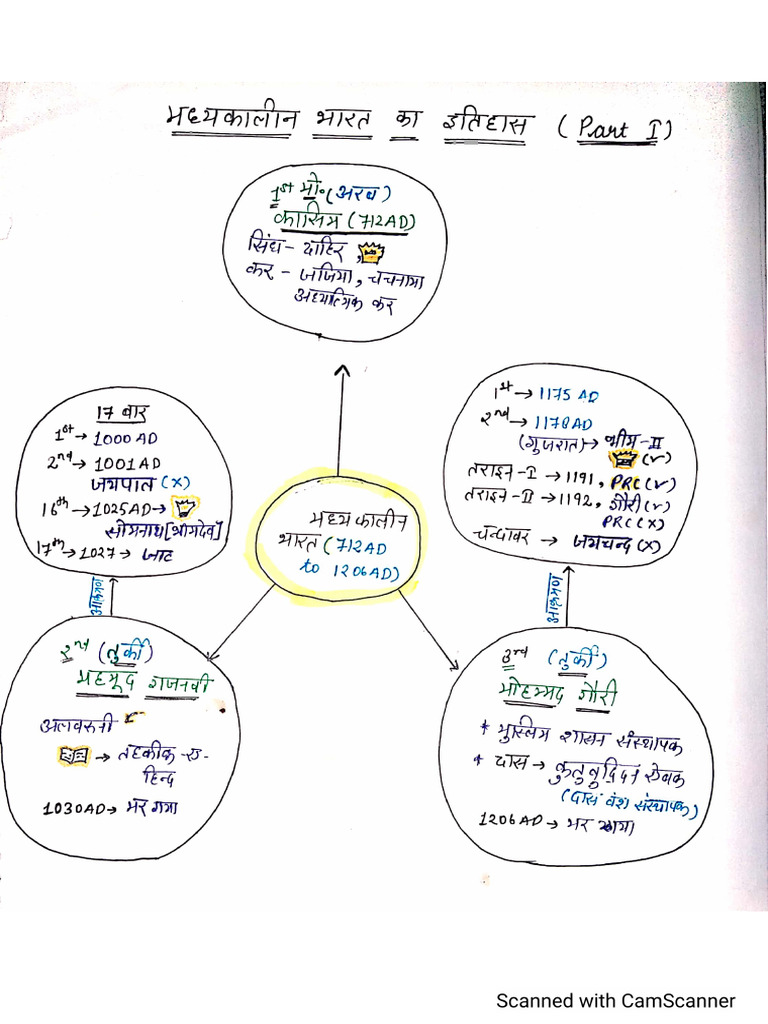 मध्यकालीन भारत का इतिहास (Part I)
1st मो॰ (अरब)
कासिम (712AD)
सिंध - दाहिर,
कर - जजिया, चचनामा
अध्यात्मिक कर
17 बार
1st → 1000 AD
2nd → 1001AD
जयपाल (x)
16th → 1025AD →
सोमनाथ [भीमदेव]
17th → 1027 → जाट
आक्रमण
1st → 1175 AD
2nd → 1178AD
(गुजरात) → भीम - II
(✓)
तराइन - I → 1191, PRC (✓)
तराइन - II → 1192, गौरी (✓)
PRC (x)
चन्दावर → जयचन्द (x)
आक्रमण
मध्यकालीन
भारत (712AD
to 1206AD)
2nd (तुर्की)
महमूद गजनवी
अलबरूनी
→ तहकीक - ए -
हिन्द
1030AD → मर गया
3rd (तुर्की)
मोहम्मद गौरी
* मुस्लिम शासन संस्थापक
* दास → कुतुबुद्दिन ऐबक
(दास वंश संस्थापक)
1206AD → मर गया
Scanned with CamScanner